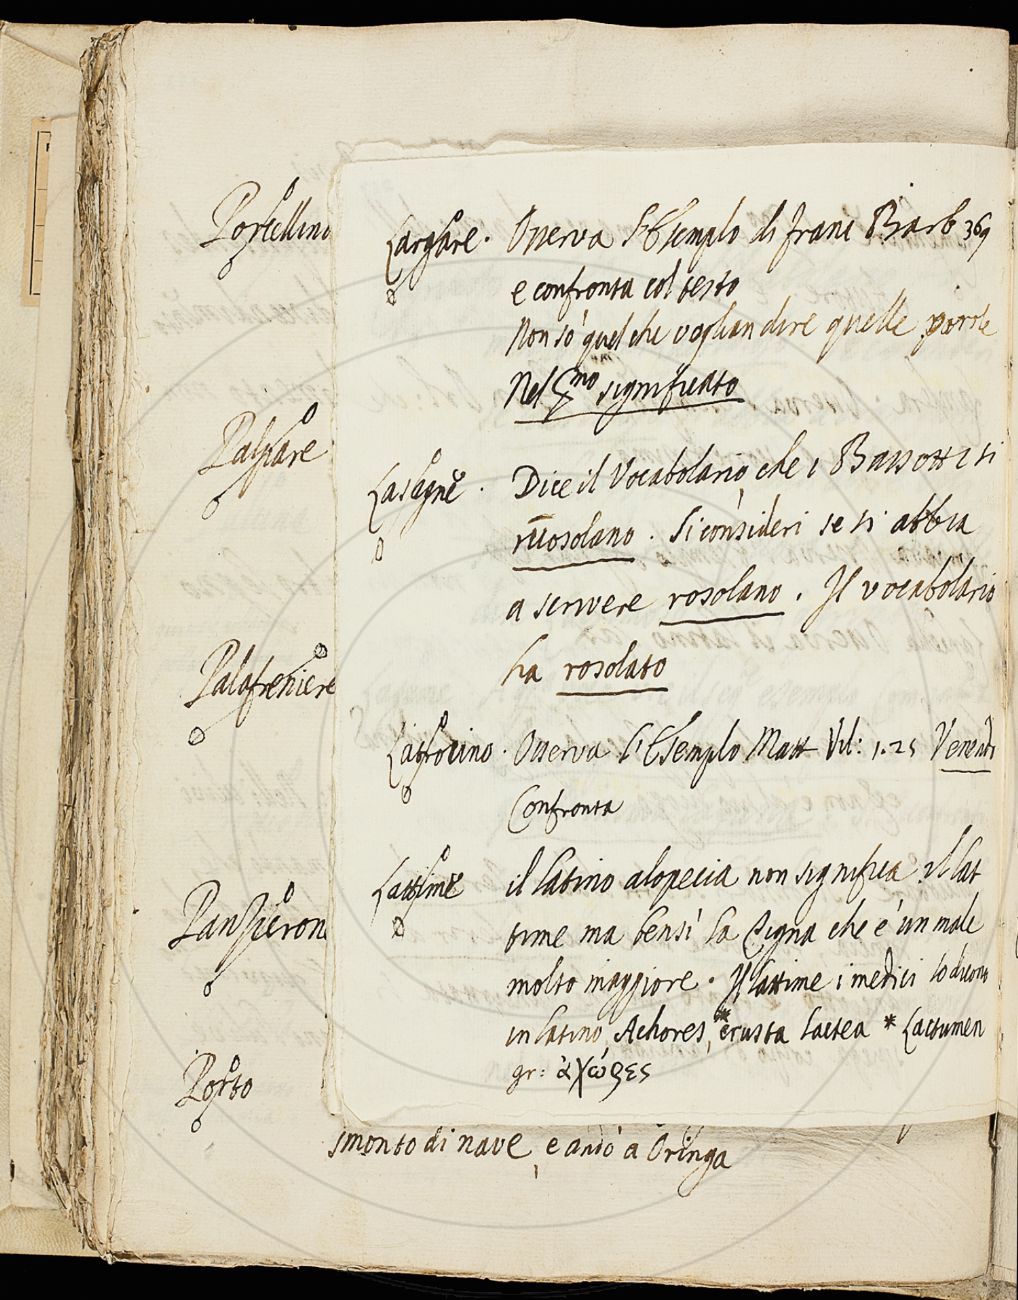 Porcellini
Palpare
Palafreniere
Panperon
Porto
Largare. Osserva l'Esemplo di franc Barb 369
e confronta col testo
Non so quel che voglian dire quelle parole
Nel significato
Lasagne. Dice il Vocabolario che i Bassotti si
ruosolano. Si consideri se si abbia
a scrivere rosolano. Il vocabolario
ha rosolato
Latrocino. Osserva l'Esemplo Matt Vil: 1.25 Venendi
Confronta
Lattime il latino alopecia non significa il lat
time ma bensì la Tigna che è un male
molto maggiore. Il lattime i medici lo dicono
in latino Achores, *crusta lactea * Lactumen
gr: ἀχῶρες
smonto di nave, e andò a Oringa